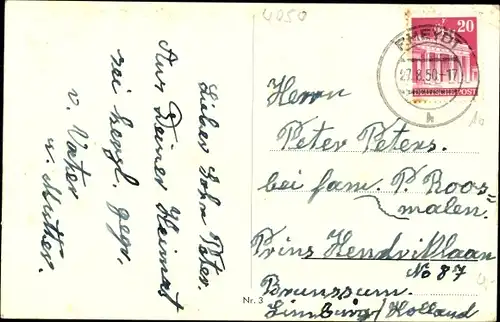 4050
Lieber Sohn Peter.
Aus Deiner Heimat
sei herzl. gegr.
v. Vater
u. Mutter.
20
RHEYDT
27.8.50-17
DEUTSCHE POST
h
Herrn
Peter Peters.
bei fam. P. Roos=
malen.
Prins Hendriklaan
No 87
Brunssum.
Limburg/Holland
Nr. 3